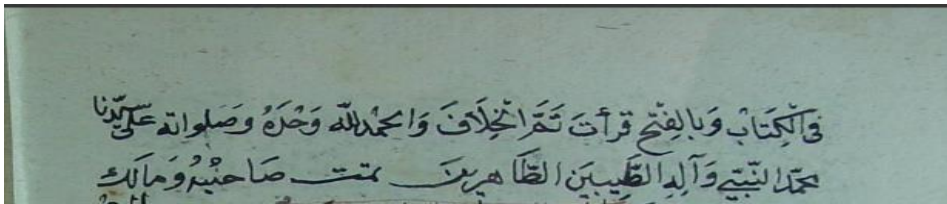 في الْكِتَابْ وَبِالْفَتْحِ قرأتَ تَمَّ الْخِلَافَ وَالحمْدُ للّه وَحْدَهُ وَصَلواته عَلى سَيّدنا
محمّد النّبيّ وَآلِهِ الطَّيِبِينَ الطَّاهِرِينَ تمت صَاحبُهُ وَمَالك